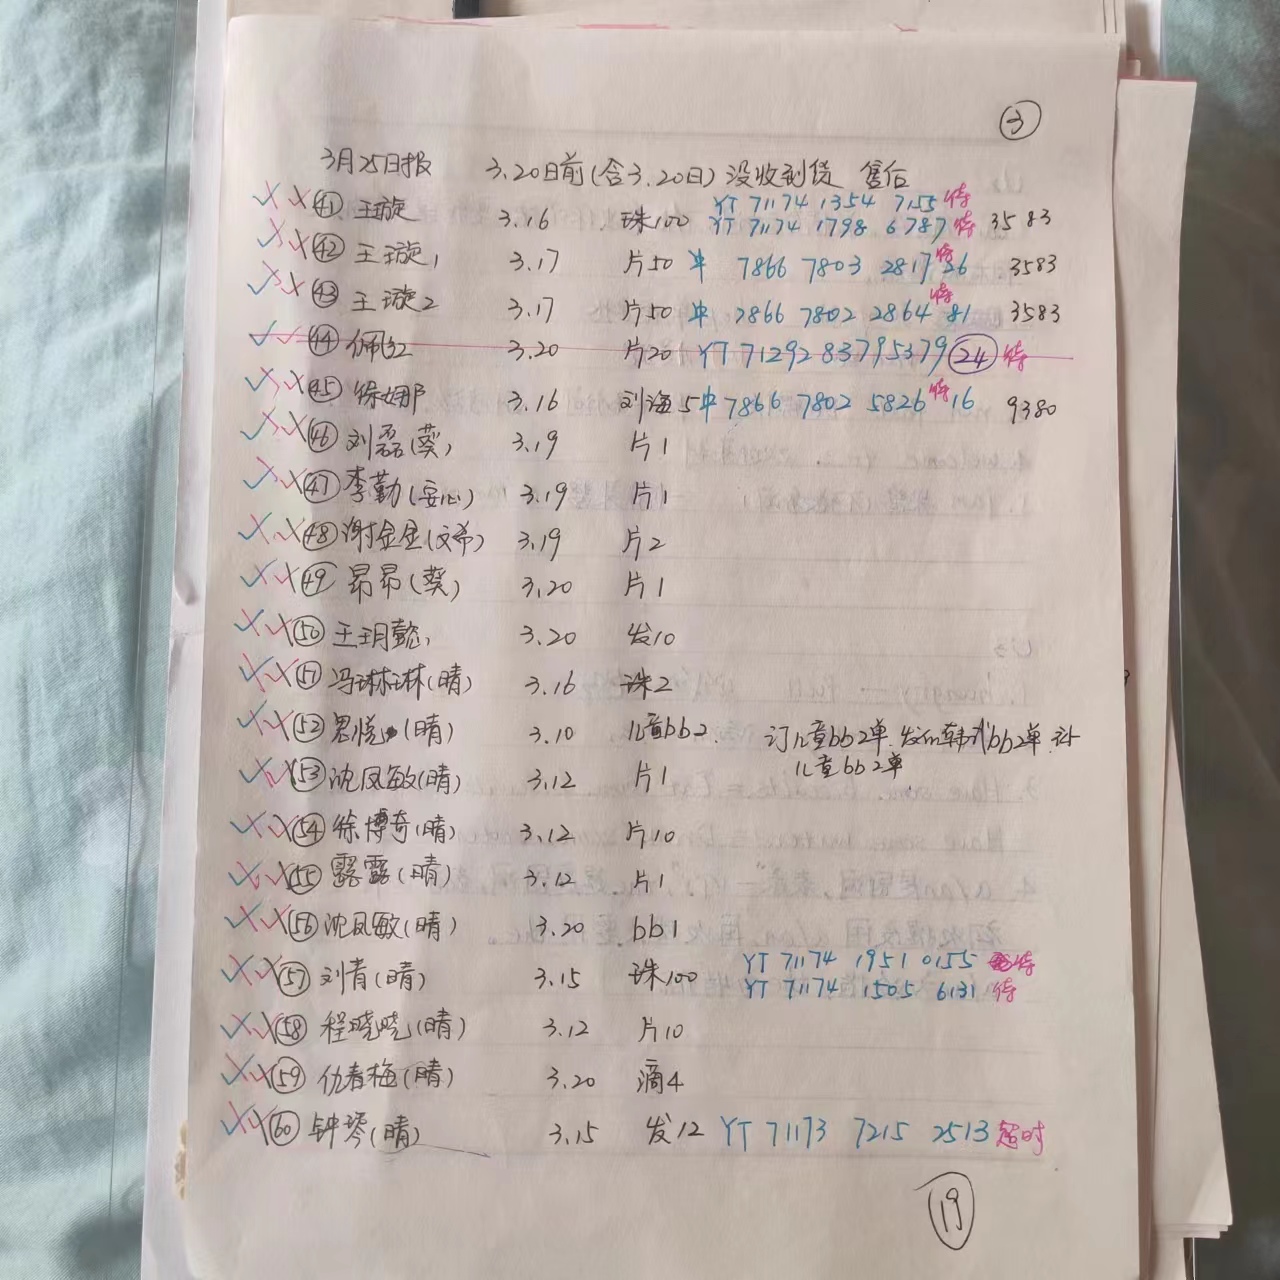 ③
3月25日报 3.20日前(含3.20日)没收到货 售后
YT 71174 1354 7155 待
㊶ 王璇 3.16 珠100 YT 71174 1798 6787 待 3583
㊷ 王璇1 3.17 片50 中 7866 7803 2817 待 26 3583
㊸ 王璇2 3.17 片50 中 7866 7802 2864 待 81 3583
㊹ 佩红 3.20 片20 YT 7129283795379 ㉔ 待
㊺ 徐娜 3.16 刘海5 中 7866 7802 5826 待 16 9380
㊻ 刘磊(葵) 3.19 片1
㊼ 李勤(安心) 3.19 片1
㊽ 谢金金(文希) 3.19 片2
㊾ 昂昂(葵) 3.20 片1
㊿ 王玥懿1 3.20 发10
51 冯琳琳(晴) 3.16 珠2
52 思悦(晴) 3.10 儿童bb2 订儿童bb2单.发的韩式bb2单.补
儿童bb2单
53 沈凤敏(晴) 3.12 片1
54 徐博奇(晴) 3.12 片10
55 露露(晴) 3.12 片1
56 沈凤敏(晴) 3.20 bb1
YT 71174 1951 0155 待
57 刘青(晴) 3.15 珠100 YT 71174 1505 6131 待
58 程晓晓(晴) 3.12 片10
59 仇春梅(晴) 3.20 滴4
60 钟琴(晴) 3.15 发12 YT 71173 7215 2513 超时
⑲